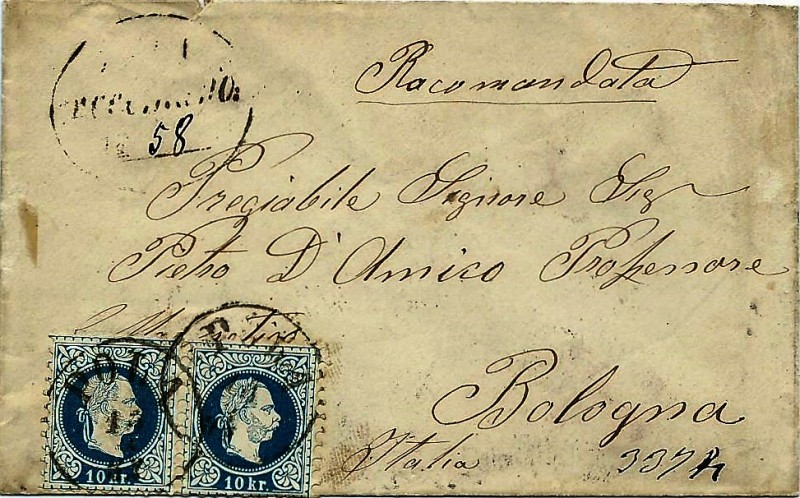 Racomandata
58
Pregiabile Signore Sig
Pietro D'Amico Professore
Bologna
Italia
337
POLA
10 kr.
10 kr.